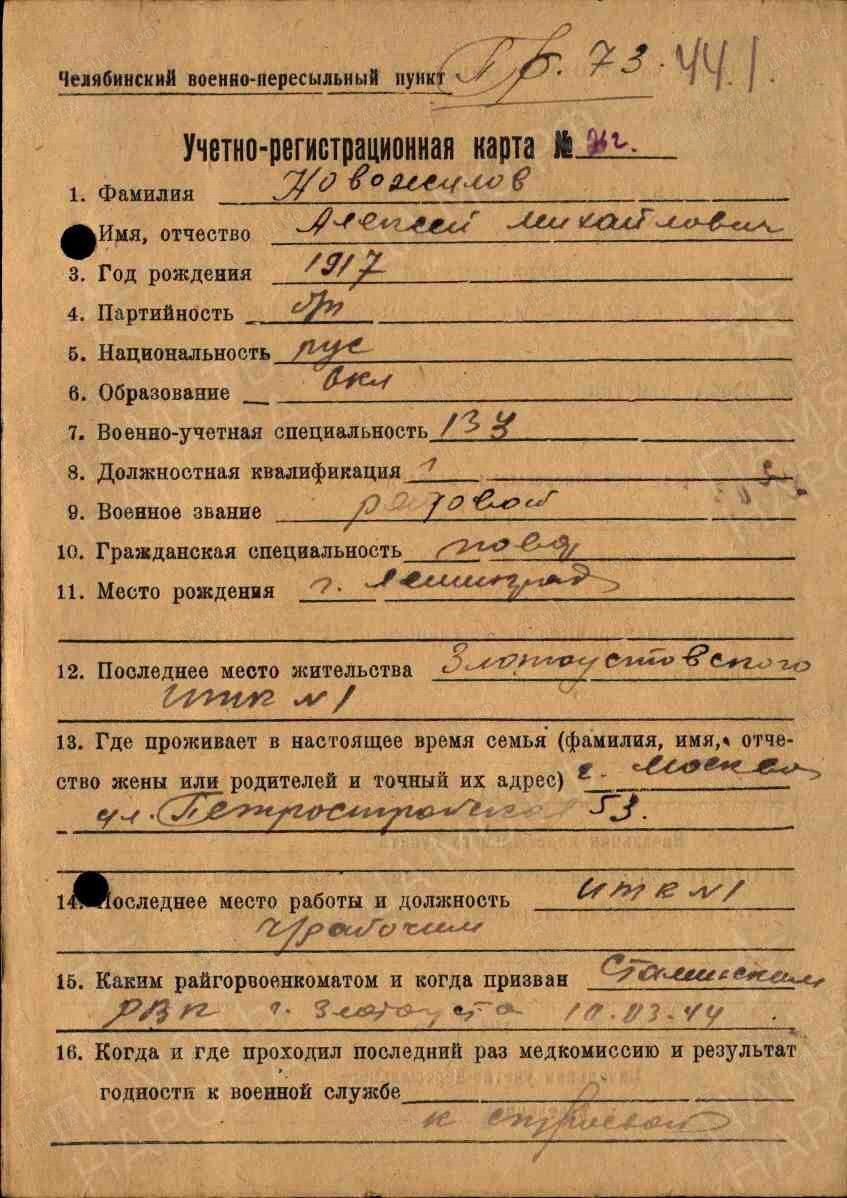 Челябинский военно-пересыльный пункт Пр. 73. 44.1.
Учетно-регистрационная карта №
1. Фамилия Новожилов
Имя, отчество Алексей Михайлович
3. Год рождения 1917
4. Партийность бп
5. Национальность рус
6. Образование 6 кл
7. Военно-учетная специальность 133
8. Должностная квалификация
9. Военное звание рядовой
10. Гражданская специальность повар
11. Место рождения г. Ленинград
12. Последнее место жительства Златоустовского
ИТК №1
13. Где проживает в настоящее время семья (фамилия, имя, отче-
ство жены или родителей и точный их адрес) г. Москва
ул. 53.
14. Последнее место работы и должность ИТК №1
Ч/рабочим
15. Каким райгорвоенкоматом и когда призван Сталинским
РВК г. Златоуста 10.03.44
16. Когда и где проходил последний раз медкомиссию и результат
годности к военной службе
к строевой